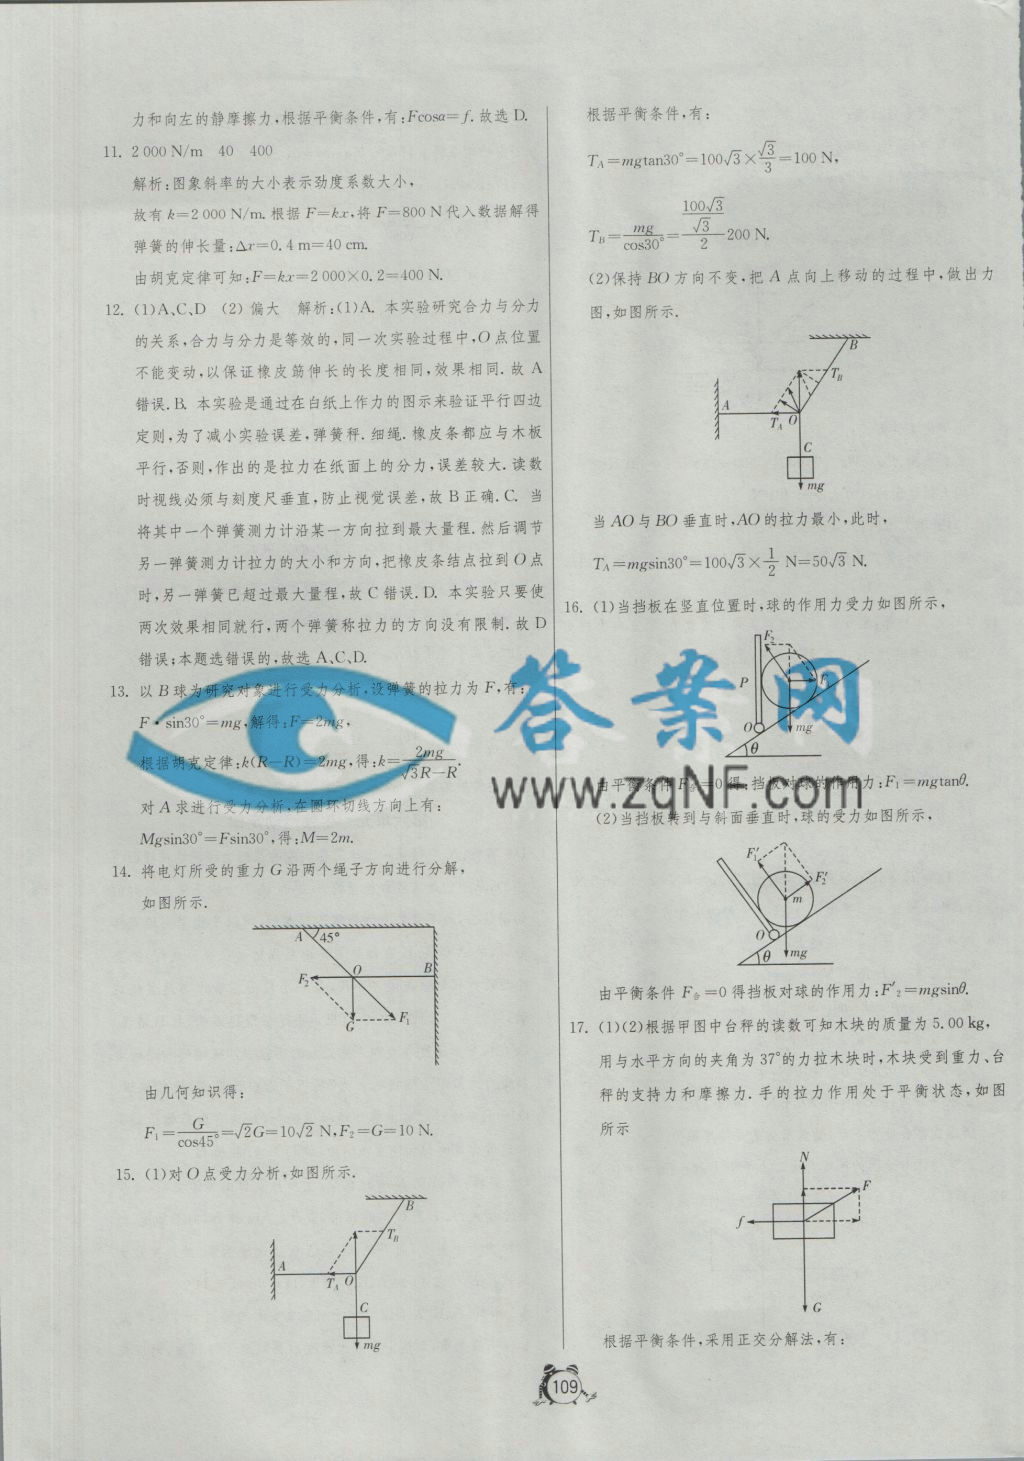 力和向左的静摩擦力,根据平衡条件,有:Fcosα=f.故选 D.
11. 2 000 N/m 40 400
解析:图象斜率的大小表示劲度系数大小,
故有 k=2 000 N/m.根据 F=kx,将 F=800 N代入数据解得
弹簧的伸长量:Δx=0.4 m=40 cm.
由胡克定律可知:F=kx=2 000×0.2=400 N.
12. (1)A、C、D (2) 偏大 解析:(1)A. 本实验研究合力与分力
的关系,合力与分力是等效的,同一次实验过程中,O点位置
不能变动,以保证橡皮筋伸长的长度相同,效果相同.故 A
错误.B. 本实验是通过在白纸上作力的图示来验证平行四边
定则,为了减小实验误差,弹簧秤.细绳.橡皮条都应与木板
平行,否则,作出的是拉力在纸面上的分力,误差较大.读数
时视线必须与刻度尺垂直,防止视觉误差,故 B 正确.C. 当
将其中一个弹簧测力计沿某一方向拉到最大量程.然后调节
另一弹簧测力计拉力的大小和方向,把橡皮条结点拉到 O 点
时,另一弹簧已超过最大量程,故 C 错误.D. 本实验只要使
两次效果相同就行,两个弹簧称拉力的方向没有限制.故 D
错误;本题选错误的,故选 A、C、D.
13. 以 B 球为研究对象进行受力分析,设弹簧的拉力为 F,有:
F·sin30°=mg,解得:F=2mg,
根据胡克定律:k(R-R)=2mg,得:k=2mg/(√3R-R).
对 A 求进行受力分析,在圆环切线方向上有:
Mgsin30°=Fsin30°,得:M=2m.
14. 将电灯所受的重力 G 沿两个绳子方向进行分解,
如图所示.
A 45°
F₂ O B
G F₁
由几何知识得:
F₁=G/cos45°=√2G=10√2 N,F₂=G=10 N.
15. (1)对 O 点受力分析,如图所示.
B
T_B
A
T_A O
C
mg
根据平衡条件,有:
T_A=mgtan30°=100√3×√3/3=100 N,
T_B=mg/cos30°=100√3/(√3/2) 200 N.
(2)保持 BO 方向不变,把 A 点向上移动的过程中,做出力
图,如图所示.
B
T_B
A
T_A O
C
mg
当 AO 与 BO 垂直时,AO 的拉力最小,此时,
T_A=mgsin30°=100√3×1/2 N=50√3 N.
16. (1)当挡板在竖直位置时,球的作用力受力如图所示,
F₂
P
O mg
θ
由平衡条件 F合=0 得:挡板对球的作用力:F₁=mgtanθ.
(2)当挡板转到与斜面垂直时,球的受力如图所示,
F₁′
F₂′
m
O
θ mg
由平衡条件 F合=0 得挡板对球的作用力:F′₂=mgsinθ.
17. (1)(2)根据甲图中台秤的读数可知木块的质量为 5.00 kg,
用与水平方向的夹角为 37°的力拉木块时,木块受到重力、台
秤的支持力和摩擦力.手的拉力作用处于平衡状态,如图
所示
N
F
f
G
根据平衡条件,采用正交分解法,有:
答案网
www.zqNF.com
109